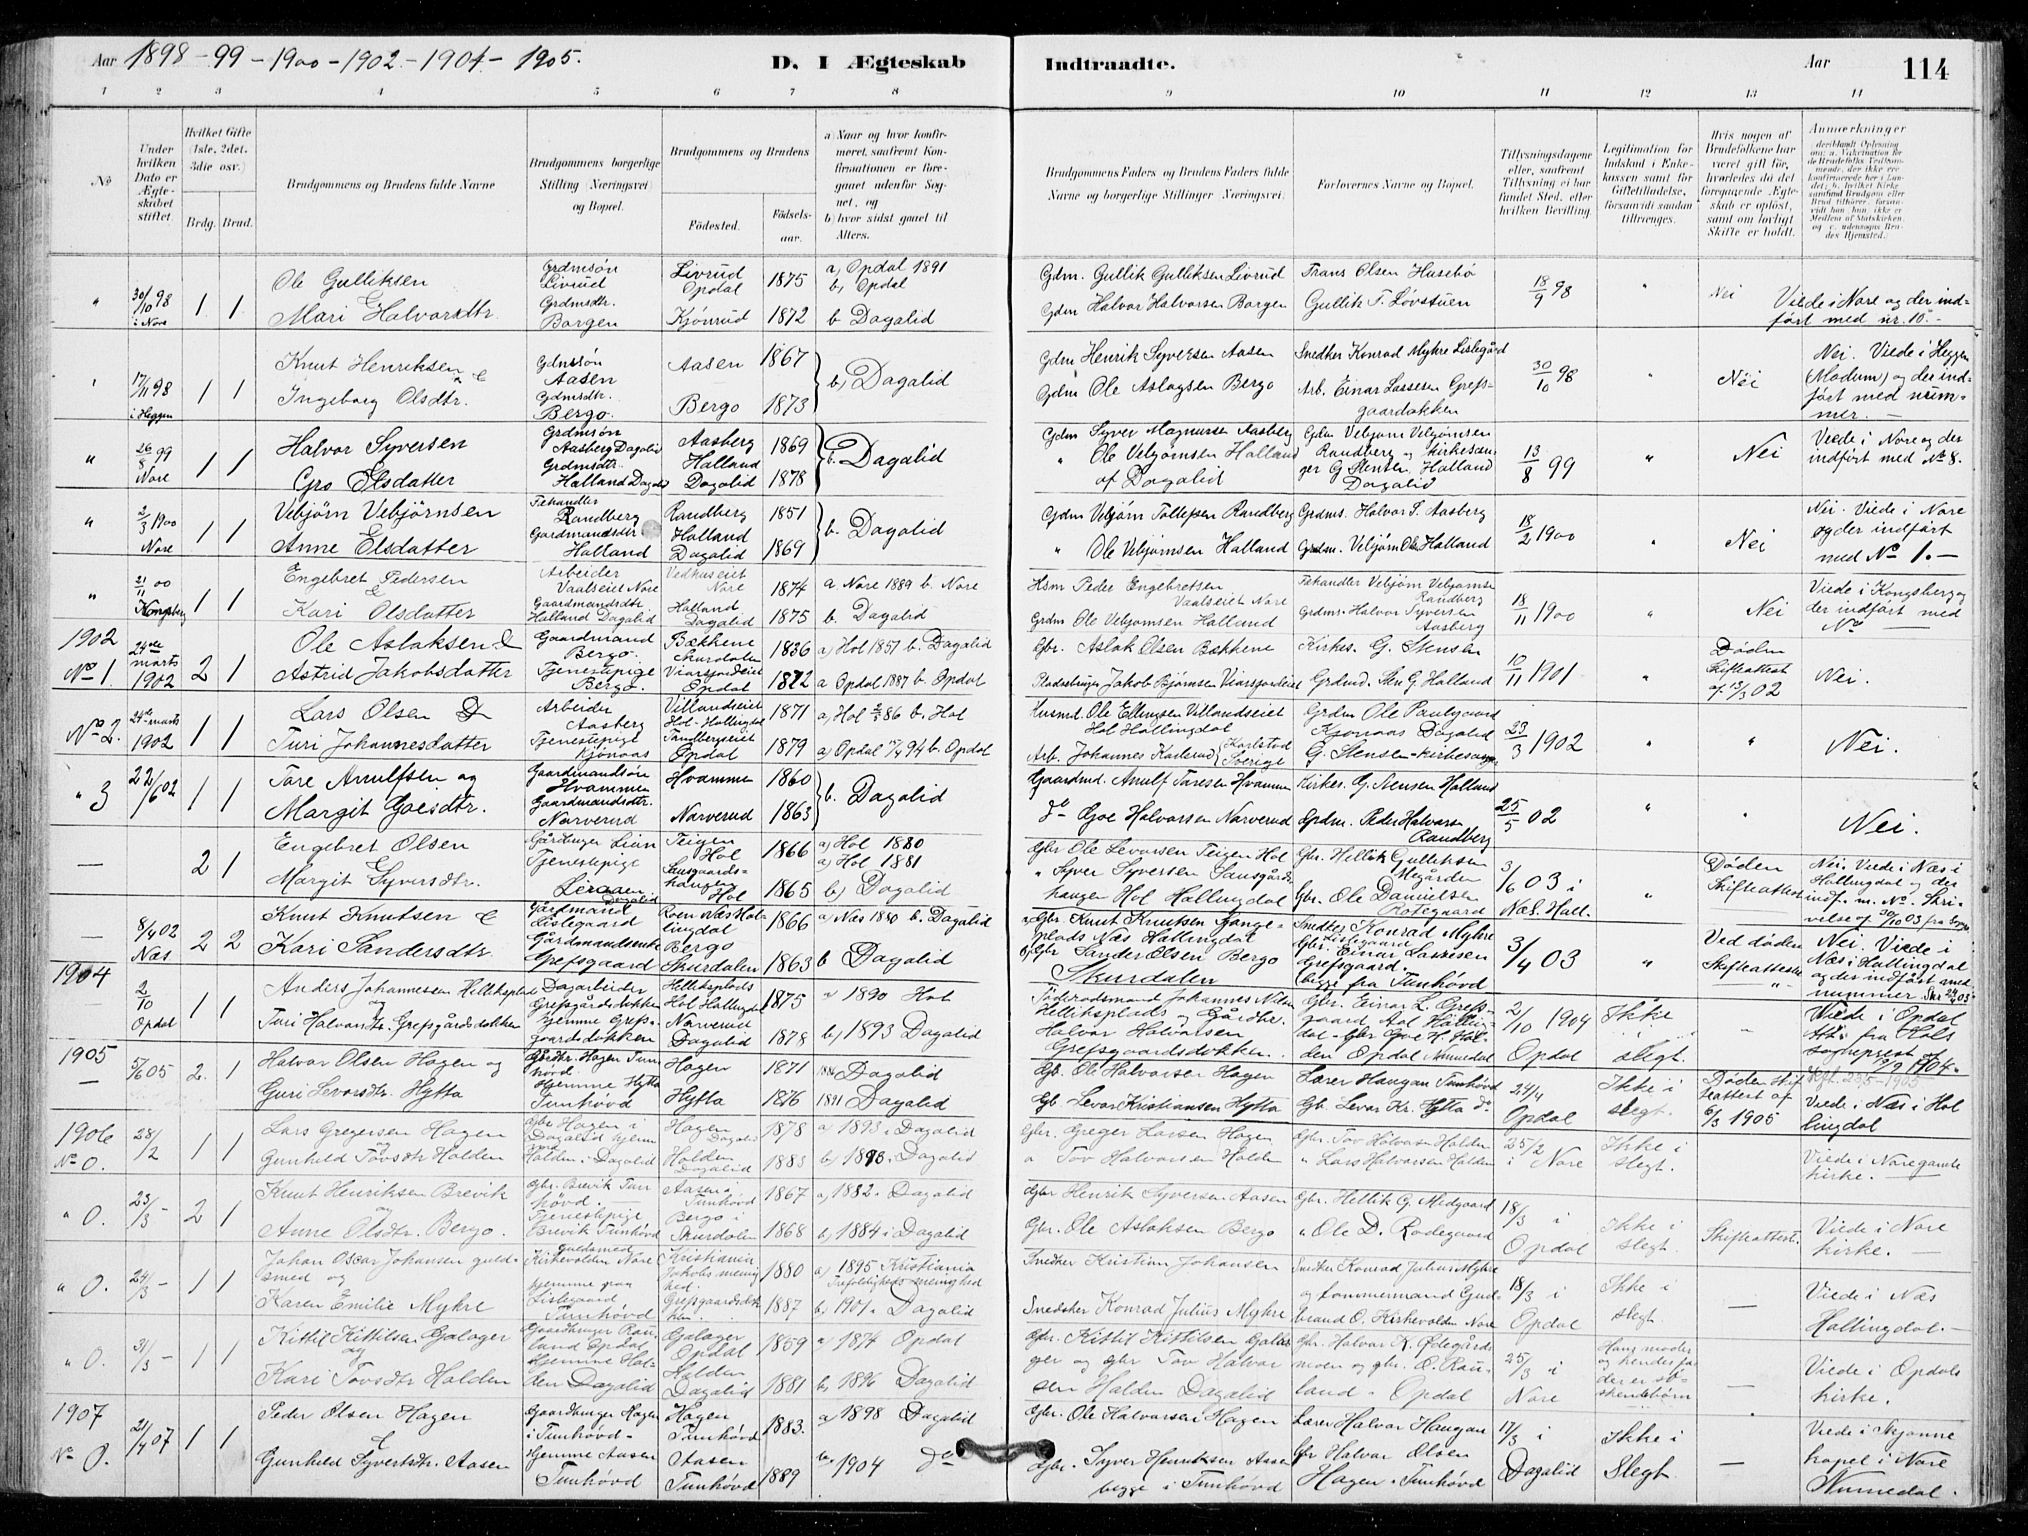 Aar 1898-99-1900-1902-1904-1905.
D. I Ægteskab Indtraadte.
Aar 114
1 2 3 4 5 6 7 8 9 10 11 12 13 14
No
Under hvilken Dato er Ægteskabet stiftet.
Hvilket Gifte (1ste, 2det, 3die osv.)
Brdg. Brud.
Brudgommens og Brudens fulde Navne
Brudgommens borgerlige Stilling (Næringsvei) og Bopæl.
Brudgommens og Brudens
Fødested.
Fødselsaar.
a) Naar og hvor konfirmeret, saafremt Konfirmationen er foregaaet udenfor Sognet, og
b) hvor sidst gaaet til Alters.
Brudgommens Faders og Brudens Faders fulde Navne og borgerlige Stillinger Næringsvei.
Forlovernes Navne og Bopæl.
Tillysningsdagene eller, saafremt Tillysning ei har fundet Sted, efter hvilken Bevilling.
Legitimation for Indskud i Enkekassen samt for Giftetilladelse, forsaavidt saadan tiltrænges.
Hvis nogen af Brudefolkene har været gift før, hvorledes da det foregaaende Ægteskab er opløst, samt om lovligt Skifte er holdt.
Anmærkninger
" 30/10 98 i Nore 1 1
Ole Gulliksen
Mari Halvorsdtr.
Grdmsøn Livrud
Grdmsdtr. Borgen
Livrud Opdal 1875
Kjønrud 1872
a) Opdal 1891
b) Opdal
b Dagalid
Gdm. Gullik Gulliksen Livrud
Gdm Halvor Halvorsen Borgen
Frans Olsen Husebø
Gullik T. Løvstuen
18/9 98 " Nei
Viede i Nore og der indført med nr. 10.-
" 17/11 98 i Heggen 1 1
Knut Henriksen &
Ingeborg Olsdtr.
Gdmssøn Aasen
Gdmsdtr. Bergo.
Aasen 1867
Bergo 1873
b) Dagalid
Gdm Henrik Syversen Aasen
Gdm Ole Aslagsen Bergo
Snedker Konrad Myhre Lislegård
Arb. Einar Lassesen Grefsgaardokken
30/10 98 " Nei
Nei. Viede i Heggen (Modum) og der indført med nummer. -
" 26/8 99 Nore 1 1
Halvor Syversen
Gro Olsdatter
Grdmsøn Aasberg Dagalid
Grdmsdtr. Halland Dagalid
Aasberg 1869
Halland Dagalid 1878
b. Dagalid
Gdm Syver Magnussen Aasberg
" Ole Vebjørnsen Halland af Dagalid
Gdm Vebjørn Vebjørnsen Randberg og Kirkesanger G Stensen Halland Dagalid
13/8 99 " Nei
Viede i Nore og der indført med No 8.
" 2/3 1900 Nore 1 1
Vebjørn Vebjørnsen
Anne Olsdatter
Fehandler Randberg
Gaardmandsdtr Halland
Randberg 1851
Halland Dagalid 1869
b. Dagalid
Gdm Vebjørn Tollefsen Randberg
" Ole Vebjørnsen Halland
Grdms. Halvor S. Aasberg
Grdm. Vebjørn Ols Halland
18/2 1900 " Nei
Nei. Viede i Nore og der indført med No 1. -
" 21/11 00 Kongsberg 1 1
Engebret Pedersen
Kari Olsdatter
Arbeider Vaalseiet Nore
Gaardmandsdtr Halland Dagalid
Vedhuseiet Nore 1874
Halland Dagalid 1875
a Nore 1889 b. Nore
b. Dagalid
Hsm Peder Engebretsen Vaalseiet Nore
Grdm Ole Vebjørnsen Halland
Fehandler Vebjørn Vebjørnsen Randberg
Grdms. Halvor Syversen Aasberg
18/11 1900 " Nei
Viede i Kongsberg og der indført med No -
1902
No 1. 24de marts 1902 2 1
Ole Aslaksen &
Astrid Jakobsdatter
Gaardmand Bergo.
Tjenestepige Bergo.
Bækkene Skurdalen 1836
Viersjordeiet Opdal 1872
a) Hol 1851 b. Dagalid
a Opdal 1887 b. Opdal
Gbr. Aslak Olsen Bækkene
Pladsbruger Jakob Bjørnsen Viersjordeiet
Kirkes. G. Stensen
Grdmd. Sten G. Halland
10/11 1901 "
Døden Skifteattest af 13/3 02
Nei.
No 2. 24de marts 1902 1 1
Lars Olsen &
Turi Johannesdatter
Arbeider Aasberg
Tjenestepige Kjønaas
Villandseiet Hol-Hallingdal 1871
Tandbergseiet Opdal 1879
a) Hol 86 b. Hol
a) Opdal 94 b. Opdal
Husmd. Ole Ellingsen Villandseiet Hol Hallingdal
Arb. Johannes Karlsrud Karlstad Sverige
Grdm Ole Paulsgaard Kjønaas Dagalid
G. Stensen - kirkesanger
23/3 1902 " "
Nei.
" 3 22/6 02 1 1
Tore Arnulfsen og
Margit Goesdtr.
Gaardmandsøn Hvammen
Gaardmandsdtr. Narverud
Hvammen 1860
Narverud 1863
b. Dagalid
Gaardmd. Arnulf Toresen Hvammen
do Goe Halvorsen Narverud
Kirkes. G. Stensen Halland
Grdm. Peder Halvorsen Randberg
25/5 02 " "
Nei.
— 2 1
Engebret Olsen
Margit Syversdtr.
Gårdbruger Lien
Tjenestepige Dagalid
Teigen Hol 1866
Hol 1865
a) Hol 1880
a) Hol 1881
b) Dagalid
Gbr Ole Levorsen Teigen Hol
" Syver Syversen Hol Hallingdal
Gbr. Hellik Gulliksen
Gbr. Ole Danielsen Rodegaard
3/6 03 i Næs. Hall. "
Døden Skifteattest
Nei. Viede i Næs i Hallingdal og der indf. m. No. Skrivelse af 30/10 03 fra Sogn
— 8/4 02 Næs 2 2
Knut Knutsen &
Kari Sandersdtr.
Gårdmand Lislegaard
Gårdmandsenke Grefsgaard
Roen Næs Hallingdal 1866
Bergo Skurdalen 1863
a) Næs 1880 b. Dagalid
b Dagalid
a) Gbr. Knut Knutsen Næs Hallingdal
b) Gbr Sander Olsen Bergo Skurdalen
Snedker Konrad Myhre Lislegaard
Gbr. Einar Lassesen Grefsgaard.
(begge fra Tunhøvd
3/4 03 "
Ved døden
Skifteattest "
Nei. Viede i Næs i Hallingdal og der indført med nummer.
1904
2/10 Opdal 1 1
Anders Johannessen Helliksplads og
Turi Halvorsdtr. Grefsgårdsdokken
Dagarbeider Grefsgårdsdokken
hjemme Grefsgaardsdokken
Helliksplads Hol Hallingdal 1875
Narverud Dagalid 1878
a) 1890 Hol
b) 1893 Dagalid
Føderaadsmand Johannes Nilsen Helliksplads og Gårdbr. Halvor Halvorsen Grefsgaardsdokken.
Gbr. Einar L. Grefsgaard Aal Hallingdal - Gbr Goe H. Halden Opdal Numedal
2/10 1904 Opdal
Ikke i slegt. "
Viede i Opdal Att. fra Hols sogneprest 1904.
1905
— 5/6 05 2. 1
Halvor Olsen Hagen og
Guri Levorsdtr. Hytta
Gårdbr. Hagen Tunhøvd
Hjemme Hytta Tunhøvd
Hagen 1871
Hytta 1876
1886 Dagalid
1891 Dagalid
Gb. Ole Halvorsen Hagen
Gb. Levor Kristiansen Hytta
Lærer Haugan Tunhøvd
Gb. Levor Kr. Hytta do
24/4 Opdal
Ikke i slegt.
Døden skifteattest af 6/3 1905
Viede i Næs i Hallingdal
1906
No 0. 28/2 1 1
Lars Gregersen Hagen og
Gunhild Tovsdtr Halden
Gbr Hagen i Dagalid hjemme
Halden i Dagalid
Hagen Dagalid 1878
Halden Dagalid 1883
a) 1893 i Dagalid
b) 1898. Dagalid
Gbr. Greger Larsen Hagen
" Tov Halvorsen Halden
Gbr. Tov Halvorsen Halden
" Lars Halvorsen Halden
25/2 i Nore
Ikke i slegt.
Viede i Nore gamle kirke. -
" 0. 23/3 - 2 1
Knut Henriksen Brevik og
Anne Olsdtr. Bergo.
Gbr. Brevik Tunhøvd.
Tjenestepige Brevik Tunhøvd
Aasen i Tunhøvd 1867
Bergo i Skurdalen 1868
a) 1882. Dagalid
b) 1884 i Dagalid
Gbr Henrik Syversen Aasen
Gbr. Ole Aslaksen Bergo
Gbr. Hellik G. Midgaard
" Ole D. Rodegaard
18/3 i Opdal
Ikke i slegt.
Skifteattest.
Viede i Nore kirke. -
" 0. 24/3 - 1 1
Johan Oscar Johansen guldsmed og
Karen Emilie Myhre
guldsmed Kirkevolden Nore
hjemme paa Lislegaard Tunhøvd
Kristiania Jakobs menighed. 1880
1887
a) 1895 Kristiania Trefoldigheds menighed
b) 1901. Dagalid
Snedker Kristian Johansen
Snedker Konrad Julius Myhre
Snedker Konrad Julius Myhre og tømmermand Gudbrand O. Kirkevolden Nore
18/3 i Opdal
Ikke i slegt. —
Viede i Næs Hallingdal. -
" 0. 31/3 - 1 1
Kittil Kittilsen Galager og
Kari Tovsdtr Halden
Gaardbruger Rauland Opdal
Hjemme Halden Dagalid
Galager Opdal 1859
Halden Dagalid 1881
a) 1874 Opdal
b) 1896 Dagalid
Gbr. Kittil Kittilsen Galager og Gbr Tov Halvorsen Halden Dagalid
Gbr. Halvor K. Ødegårdsmoen og gbr. O. Rauland. Opdal
25/3 i Nore
Hans moder og hendes fader er søskendebørn —
Viede i Opdals kirke.
1907
No 0. 21/4 07 1 1
Peder Olsen Hagen &
Gunhild Syversdtr. Aasen
Gaardbruger Hagen i Tunhøvd -
Hjemme Aasen Tunhøvd
Hagen Tunhøvd 1883.
Aasen Tunhøvd 1889
a) 1898 Dagalid
b) 1904 do
Gbr. Ole Halvorsen Hagen
Gbr. Syver Henriksen Aasen begge i Tunhøvd
Lærer Halvor Haugan
Gbr Halvor Olsen Hagen. Tunhøvd
17/3 i Dagalid
Ikke i Slegt —
Viede i Skjønne kapel i Nore Numedal.